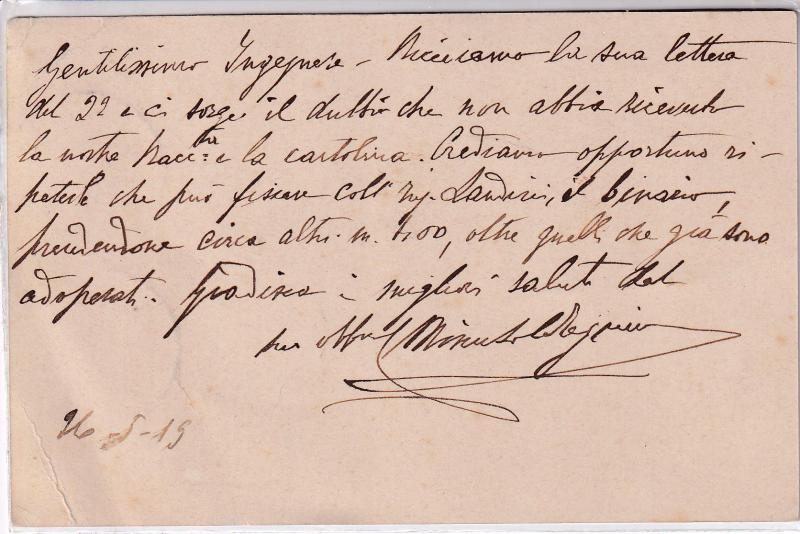 Gentilissimo Ingegnere - Riceviamo la sua lettera
del 22 e ci sorge il dubbio che non abbia ricevuto
la nostra Racc.ta e la cartolina. Crediamo opportuno ri-
peterle che può fissare coll'Ing. Landini, il binario,
prendendone circa altri m. 400, oltre quelli che già sono
adoperati. Gradisca i migliori saluti dal
suo obbl
26-5-19